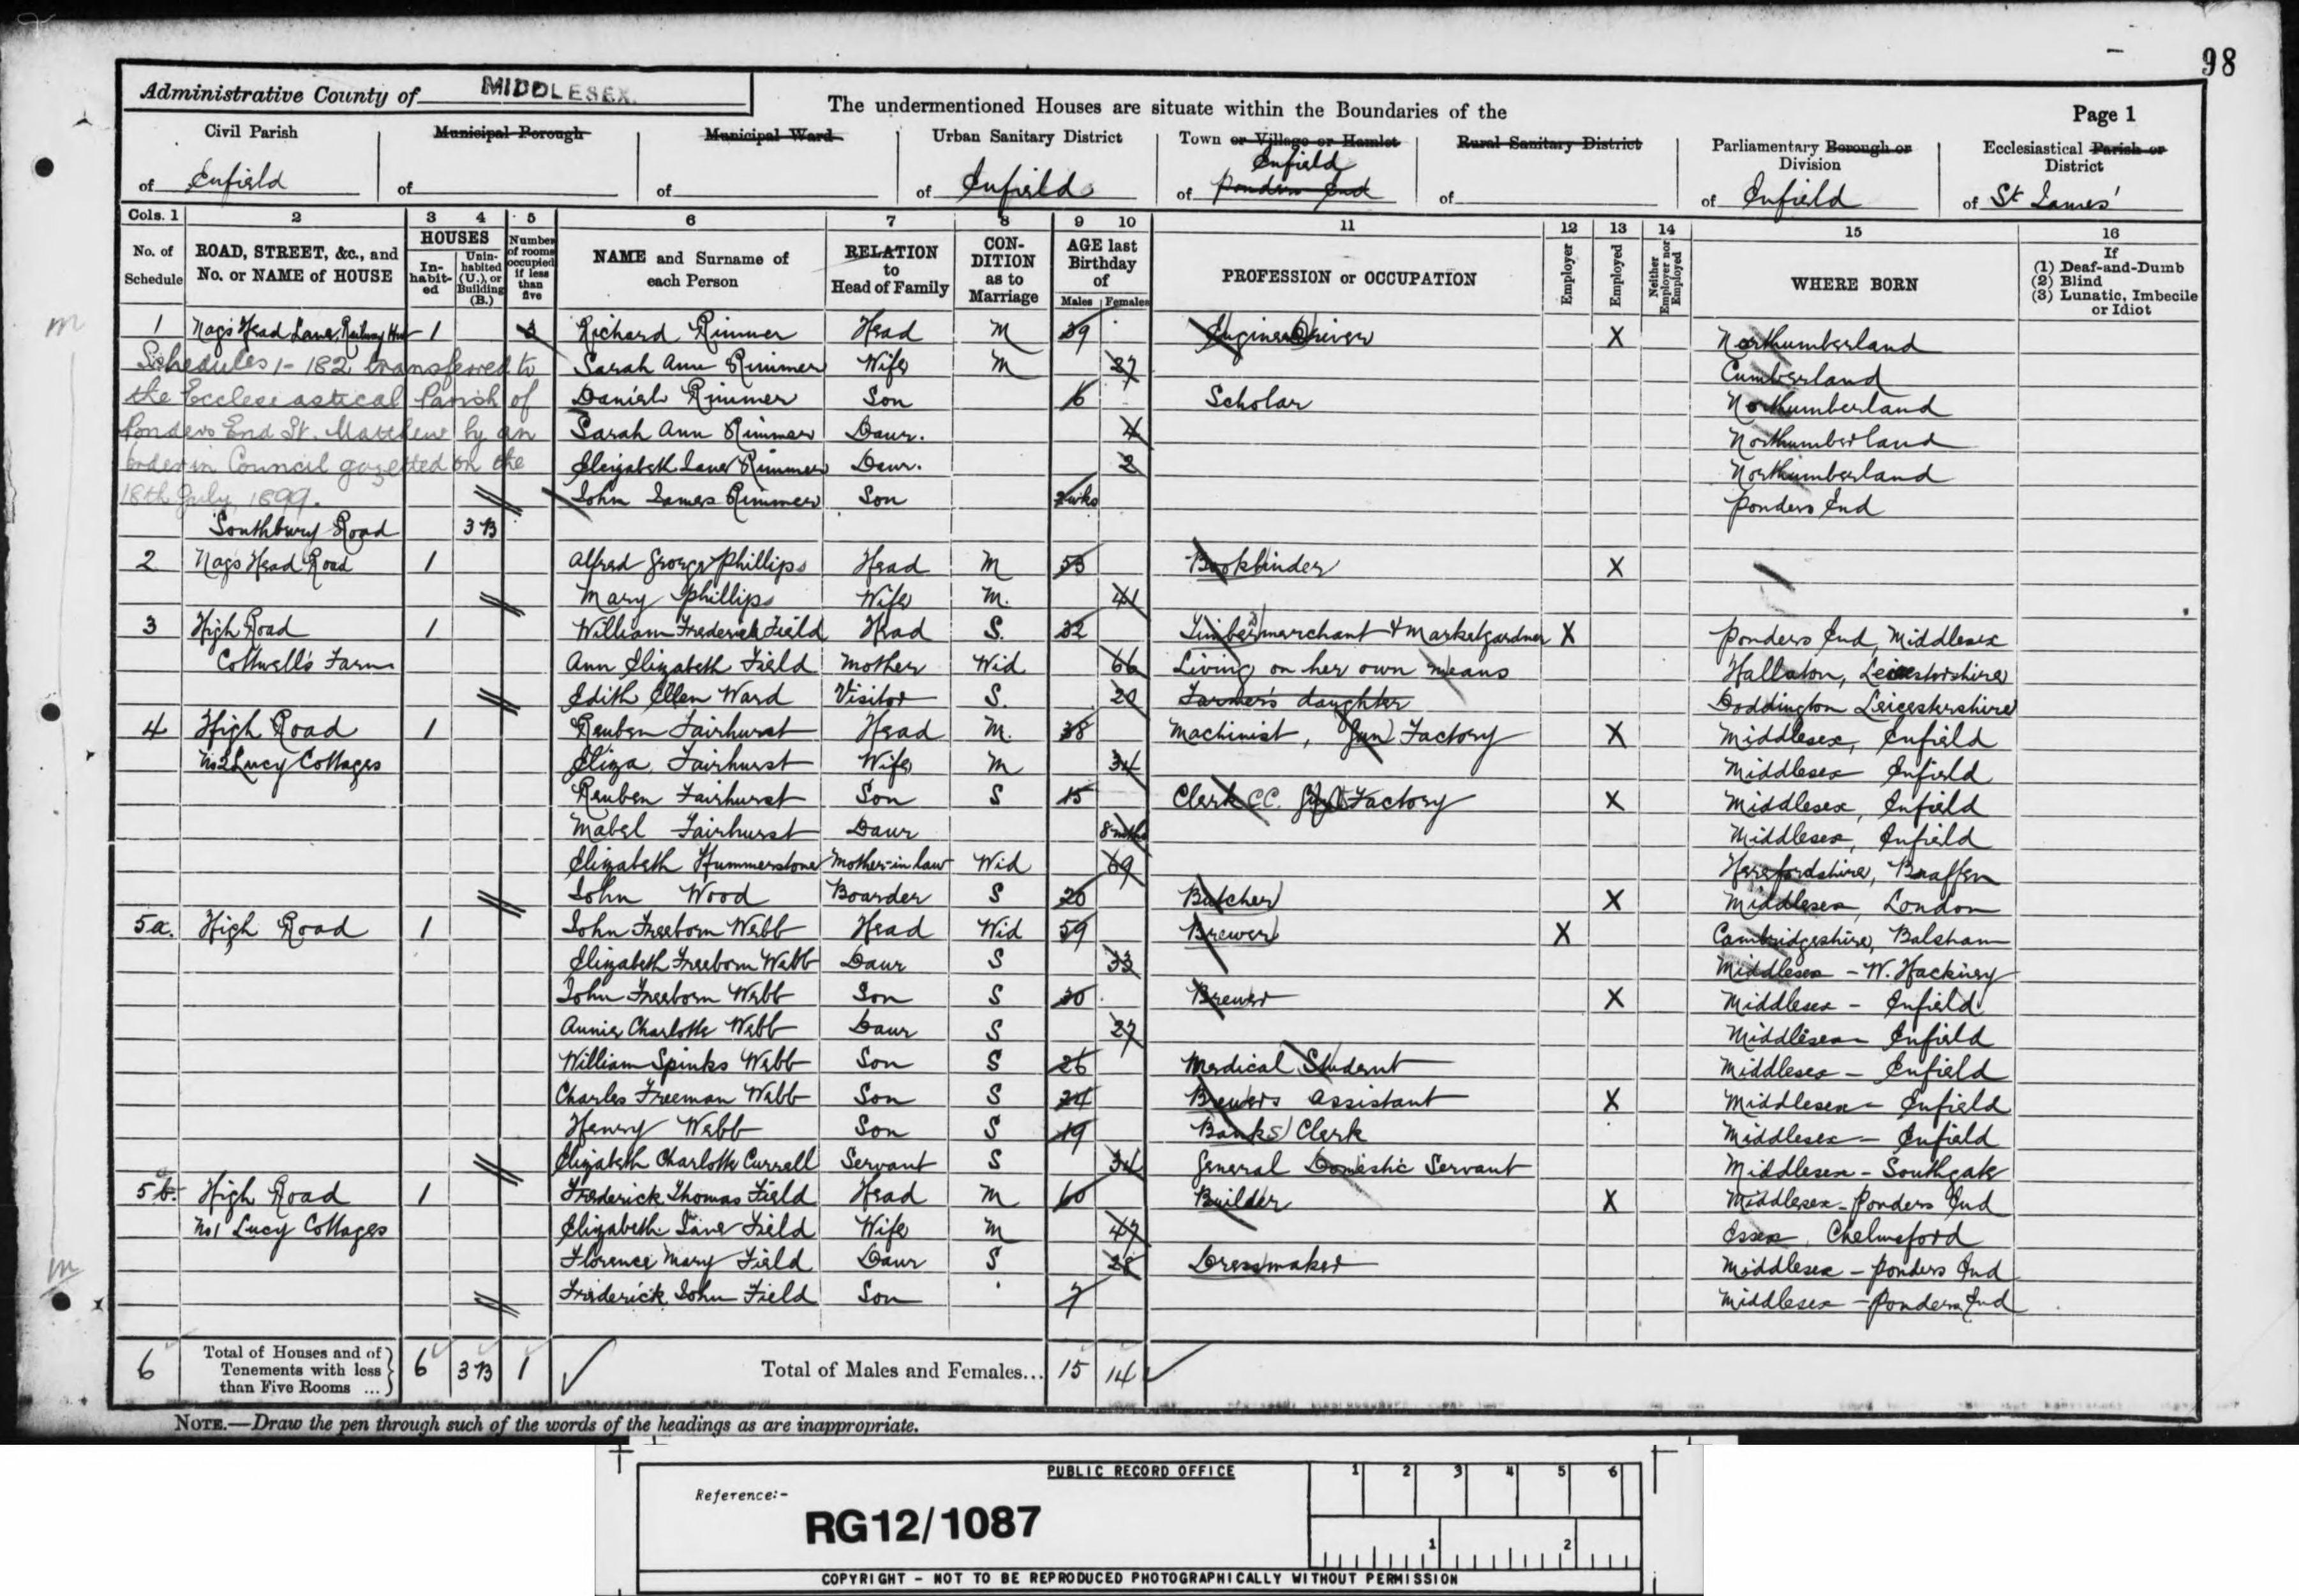 98
Administrative County of MIDDLESEX.
The undermentioned Houses are situate within the Boundaries of the
Page 1
Civil Parish of Enfield
Municipal Borough of
Municipal Ward of
Urban Sanitary District of Enfield
Town or Village or Hamlet of Enfield Ponders End
Rural Sanitary District of
Parliamentary Borough or Division of Enfield
Ecclesiastical Parish or District of St James'
Cols. 1 2 3 4 5 6 7 8 9 10 11 12 13 14 15 16
No. of Schedule
ROAD, STREET, &c., and No. or NAME of HOUSE
HOUSES
In-habit-ed
Unin-habited (U.), or Building (B.)
Number of rooms occupied if less than five
NAME and Surname of each Person
RELATION to Head of Family
CON-DITION as to Marriage
AGE last Birthday of
Males Females
PROFESSION or OCCUPATION
Employer
Employed
Neither Employer nor Employed
WHERE BORN
If
(1) Deaf-and-Dumb
(2) Blind
(3) Lunatic, Imbecile or Idiot
1 Nags Head Lane, Railway 1 3 Richard Rimmer Head M 39 Engine Driver X Northumberland
Schedules 1-182 transferred to
the Ecclesiastical Parish of
Ponders End St. Matthew by an
order in Council gazetted on the
18th July, 1899.
Sarah Ann Rimmer Wife M 27 Cumberland
Daniel Rimmer Son 6 Scholar Northumberland
Sarah Ann Rimmer Daur. 4 Northumberland
Elizabeth Jane Rimmer Daur. 2 Northumberland
John James Rimmer Son Ponders End
Southbury Road 3 B
2 Nags Head Road 1 Alfred George Phillips Head M 53 Bookbinder X
Mary Phillips Wife M. 41
3 High Road 1 William Frederick Field Head S. 32 Timber merchant & Marketgardner X Ponders End, Middlesex
Cottwell's Farm Ann Elizabeth Field Mother Wid 66 Living on her own means Hallaton, Leicestershire
Edith Ellen Ward Visitor S. 20 Farmer's daughter Doddington Leicestershire
4 High Road 1 Reuben Fairhurst Head M. 38 Machinist, Gun Factory X Middlesex, Enfield
No 2 Lucy Cottages Eliza Fairhurst Wife M 34 Middlesex Enfield
Reuben Fairhurst Son S 15 Clerk CC. Factory X Middlesex, Enfield
Mabel Fairhurst Daur 8 mths Middlesex, Enfield
Elizabeth Hummerstone Mother-in-law Wid 69
John Wood Boarder S 20 Butcher X Middlesex, London
5a. High Road 1 John Freeborn Webb Head Wid 59 Brewer X Cambridgeshire, Balsham
Elizabeth Freeborn Webb Daur S 33 Middlesex - W. Hackney
John Freeborn Webb Son S 30 Brewer X Middlesex - Enfield
Annie Charlotte Webb Daur S 27 Middlesex Enfield
William Spinks Webb Son S 26 Medical Student Middlesex - Enfield
Charles Freeman Webb Son S 24 Brewers Assistant X Middlesex - Enfield
Henry Webb Son S 19 Banks Clerk Middlesex - Enfield
Elizabeth Charlotte Currell Servant S 34 General Domestic Servant Middlesex - Southgate
5b. High Road 1 Frederick Thomas Field Head M 60 Builder X Middlesex - Ponders End
No 1 Lucy Cottages Elizabeth Jane Field Wife M 47 Essex, Chelmsford
Florence Mary Field Daur S 28 Dressmaker Middlesex - Ponders End
Frederick John Field Son 7 Middlesex - Ponders End
6 Total of Houses and of Tenements with less than Five Rooms ... 6 3 B 1 Total of Males and Females... 15 14
NOTE.—Draw the pen through such of the words of the headings as are inappropriate.
PUBLIC RECORD OFFICE
1 2 3 4 5 6
Reference:-
RG12/1087
1 2
COPYRIGHT - NOT TO BE REPRODUCED PHOTOGRAPHICALLY WITHOUT PERMISSION